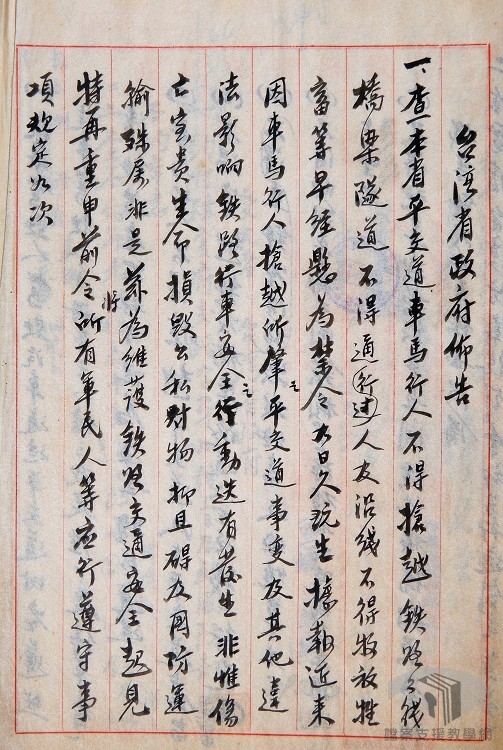 台湾省政府佈告
一、查本省平交道車馬行人不得搶越鉄路
橋梁隧道不得通行人友沿线不得牧放牲
畜等早經懸為禁令乃日久玩生據報近來
因車馬行人搶越所肇之平交道事变及其他違
法影响鉄路行車安全之行動迭有發生非惟傷
亡宝贵生命損毀公私財物抑且碍及國防運
輸殊属非是茲為維護鉄路交通安全起見
特再重申前令將所有軍民人等应行遵守事
項規定如次
檔案支援教學網